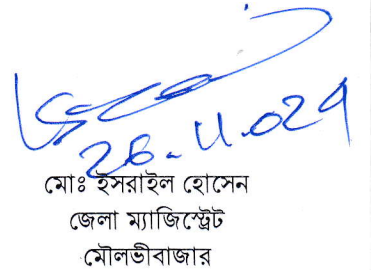 26.11.024
মোঃ ইসরাইল হোসেন
জেলা ম্যাজিস্ট্রেট
মৌলভীবাজার